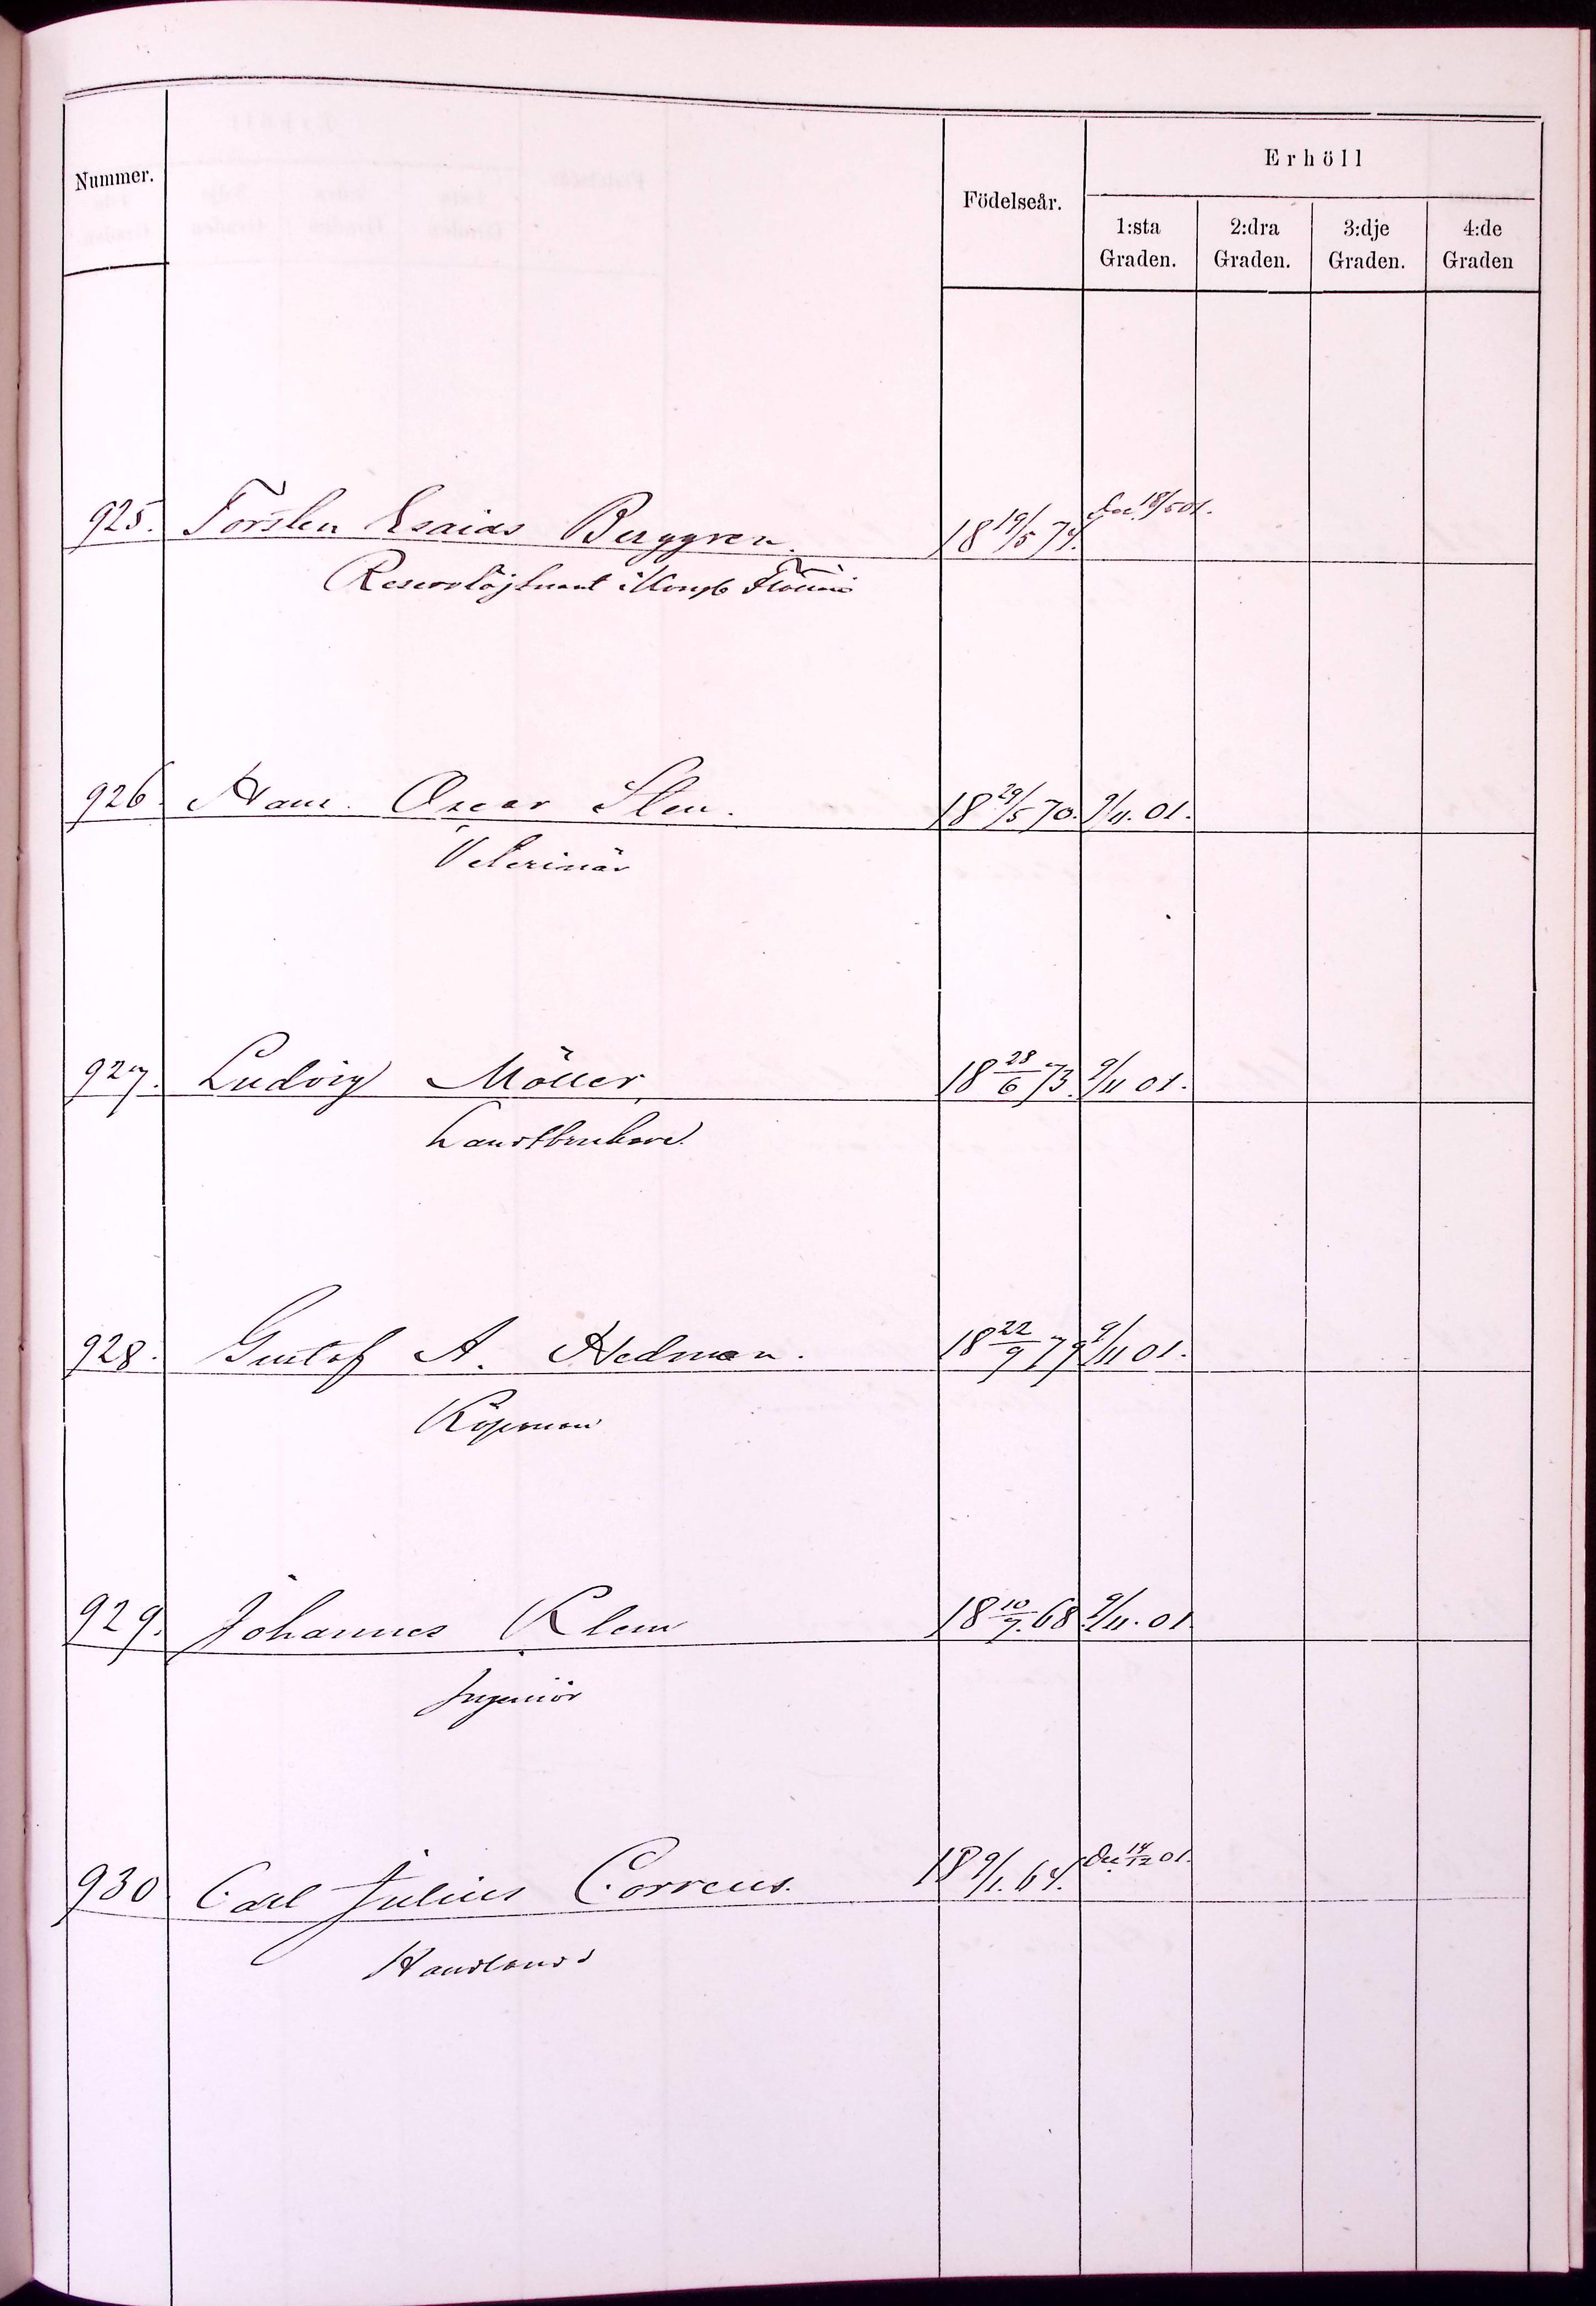 Nummer.
Födelseår.
Erhöll
1:sta Graden.
2:dra Graden.
3:dje Graden.
4:de Graden
925. Torsten Esaias Berggren. 18 19/5 74. den 18/5 01.
Reservlöjtnant i Kongl. Flottan
926. Hans Oscar Sten. 18 29/5 70. 9/11. 01.
Veterinär
927. Ludvig Möller, 18 28/6 73. 9/11 01.
Landtbrukare.
928. Gustaf A. Hedman. 18 22/9 79 9/11 01.
Köpman
929. Johannes Klem 18 10/9. 68. 9/11. 01.
Ingeniör
930 Carl Julius Correus. 18 9/1. 64. den 14/12 01.
Handlande